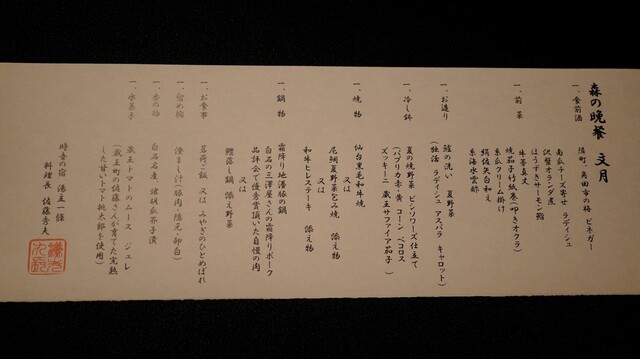 森の晩餐 文月
一、食前酒
隣町、角田市の梅 ビネガー
一、前菜
南瓜チーズ寄せ ラディシュ
沢蟹オランダ煮
ほうずきサーモン鮨
牛蒡真丈
焼茄子竹紙巻(叩きオクラ)
糸瓜クリーム掛け
絹佐矢白和え
糸海水雲酢
一、お造り
鱸の洗い 夏野菜
(独活 ラディシュ アスパラ キャロット)
一、冷し鉢
夏の焼野菜 ピンソワーズ仕立て
(パプリカ赤・黄 コーン ペコロス
ズッキーニ 蔵王サファイア茄子)
一、焼物
仙台黒毛和牛焼
又は
尾頭夏野菜包み焼 添え物
又は
和牛ヒレステーキ 添え物
一、鍋物
霜降り地養豚の鍋
白石の三澤屋さんの霜降りポーク
品評会で優秀賞頂いた自慢の肉
又は
鱧落し鍋 添え野菜
一、お食事
茗荷ご飯 又は みやぎのひとめぼれ
一、留め椀
澄まし汁(豚肉 隠元・卵白)
一、香の物
白石名産、諸胡瓜 茶子漬
一、水菓子
蔵王トマトのムース ジュレ
(蔵王町の佐藤さんが育てた完熟
した甘いトマト桃太郎を使用)
時音の宿 湯主一條
料理長 佐藤秀夫